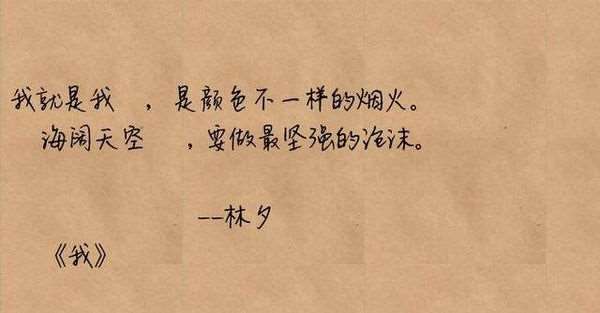 我就是我 ,是颜色不一样的烟火。
海阔天空 ,要做最坚强的泡沫。
--林夕
《我》